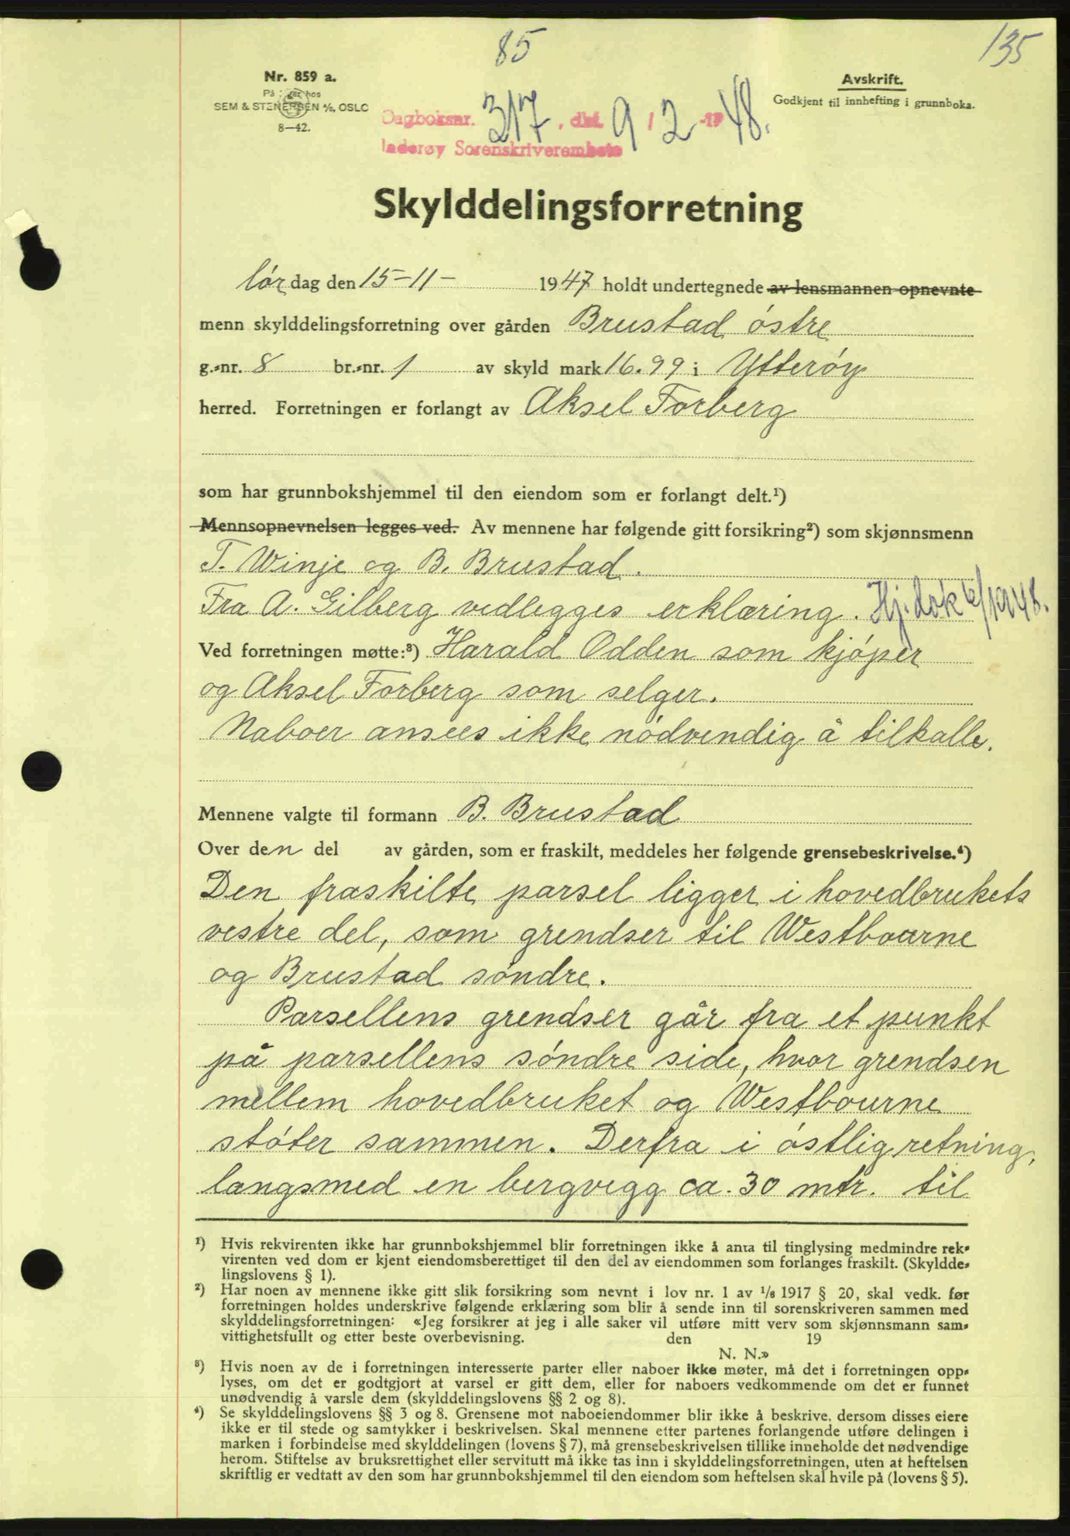 85
135
Nr. 859 a.
SEM & STENERSEN A/S, OSLO
8-42.
Avskrift.
Godkjent til innhefting i grunnboka.
Dagboksnr. 317, dat. 9/2-1948.
Inderøy Sorenskriverembete
Skylddelingsforretning
lørdag den 15-11- 1947 holdt undertegnede av lensmannen opnevnte
menn skylddelingsforretning over gården Brustad østre
g.-nr. 8 br.-nr. 1 av skyld mark 16.99 i Ytterøy
herred. Forretningen er forlangt av Aksel Forberg
som har grunnbokshjemmel til den eiendom som er forlangt delt.¹)
Mennsopnevnelsen legges ved. Av mennene har følgende gitt forsikring²) som skjønnsmenn
T. Winje og B. Brustad.
Fra A. Gilberg vedlegges erklæring. Hj.dok 6/1 1948.
Ved forretningen møtte:³) Harald Odden som kjøper
og Aksel Forberg som selger.
Naboer ansees ikke nødvendig å tilkalle.
Mennene valgte til formann B. Brustad
Over den del av gården, som er fraskilt, meddeles her følgende grensebeskrivelse.⁴)
Den fraskilte parsel ligger i hovedbrukets
vestre del, som grendser til Westbourne
og Brustad søndre.
Parsellens grendser går fra et punkt
på parsellens søndre side, hvor grendsen
mellem hovedbruket og Westbourne
støter sammen. Derfra i østlig retning,
langsmed en bergvegg ca. 30 mtr. til
¹) Hvis rekvirenten ikke har grunnbokshjemmel blir forretningen ikke å anta til tinglysing medmindre rek-
virenten ved dom er kjent eiendomsberettiget til den del av eiendommen som forlanges fraskilt. (Skyldde-
lingslovens § 1).
²) Har noen av mennene ikke gitt slik forsikring som nevnt i lov nr. 1 av 1/6 1917 § 20, skal vedk. før
forretningen holdes underskrive følgende erklæring som blir å sende inn til sorenskriveren sammen med
skylddelingsforretningen: «Jeg forsikrer at jeg i alle saker vil utføre mitt verv som skjønnsmann sam-
vittighetsfullt og etter beste overbevisning. den 19
N. N.»
³) Hvis noen av de i forretningen interesserte parter eller naboer ikke møter, må det i forretningen opp-
lyses, om det er godtgjort at varsel er gitt dem, eller for naboers vedkommende om det er funnet
unødvendig å varsle dem (skylddelingslovens §§ 2 og 8).
⁴) Se skylddelingslovens §§ 3 og 8. Grensene mot naboeiendommer blir ikke å beskrive, dersom disses eiere
ikke er til stede og samtykker i beskrivelsen. Skal mennene etter partenes forlangende utføre delingen i
marken i forbindelse med skylddelingen (lovens § 7), må grensebeskrivelsen tillike inneholde det nødvendige
herom. Stiftelse av bruksrettighet eller servitutt må ikke tas inn i skylddelingsforretningen, uten at heftelsen
skriftlig er vedtatt av den som har grunnbokshjemmel til den eiendom som heftelsen skal hvile på (lovens § 5).